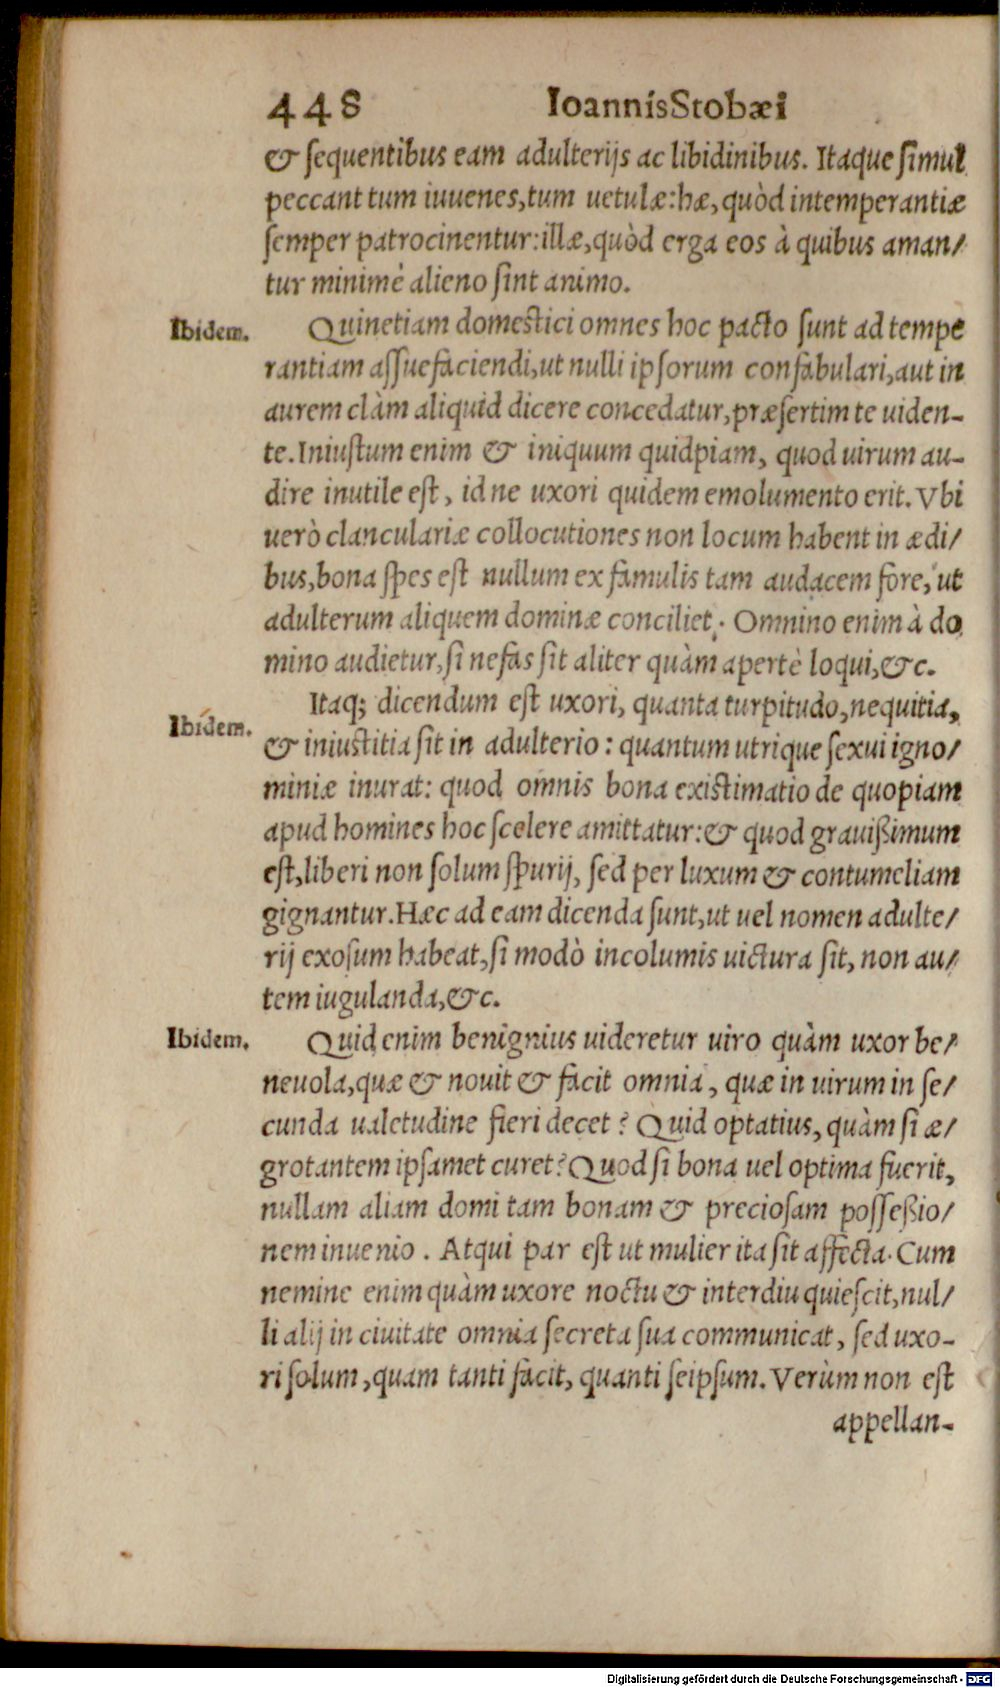 448 IoannisStobæi
& sequentibus eam adulterijs ac libidinibus. Itaque simul
peccant tum iuuenes, tum uetulæ: hæ, quòd intemperantiæ
semper patrocinentur: illæ, quòd erga eos à quibus aman/
tur minimè alieno sint animo.
Ibidem. Quinetiam domestici omnes hoc pacto sunt ad tempe
rantiam assuefaciendi, ut nulli ipsorum confabulari, aut in
aurem clàm aliquid dicere concedatur, præsertim te uiden-
te. Iniustum enim & iniquum quidpiam, quod uirum au-
dire inutile est, id ne uxori quidem emolumento erit. Vbi
uerò clanculariæ collocutiones non locum habent in ædi/
bus, bona spes est nullum ex famulis tam audacem fore, ut
adulterum aliquem dominæ conciliet. Omnino enim à do
mino audietur, si nefas sit aliter quàm apertè loqui, &c.
Ibidem. Itaq; dicendum est uxori, quanta turpitudo, nequitia,
& iniustitia sit in adulterio: quantum utrique sexui igno/
miniæ inurat: quod omnis bona existimatio de quopiam
apud homines hoc scelere amittatur: & quod grauißimum
est, liberi non solum spurij, sed per luxum & contumeliam
gignantur. Hæc ad eam dicenda sunt, ut uel nomen adulte/
rij exosum habeat, si modò incolumis uictura sit, non au/
tem iugulanda, &c.
Ibidem. Quid enim benignius uideretur uiro quàm uxor be/
neuola, quæ & nouit & facit omnia, quæ in uirum in se/
cunda ualetudine fieri decet? Quid optatius, quàm si æ/
grotantem ipsamet curet? Quod si bona uel optima fuerit,
nullam aliam domi tam bonam & preciosam posseßio/
nem inuenio. Atqui par est ut mulier ita sit affecta. Cum
nemine enim quàm uxore noctu & interdiu quiescit, nul/
li alij in ciuitate omnia secreta sua communicat, sed uxo-
ri solum, quam tanti facit, quanti seipsum. Verùm non est
appellan-
Digitalisierung gefördert durch die Deutsche Forschungsgemeinschaft - DFG